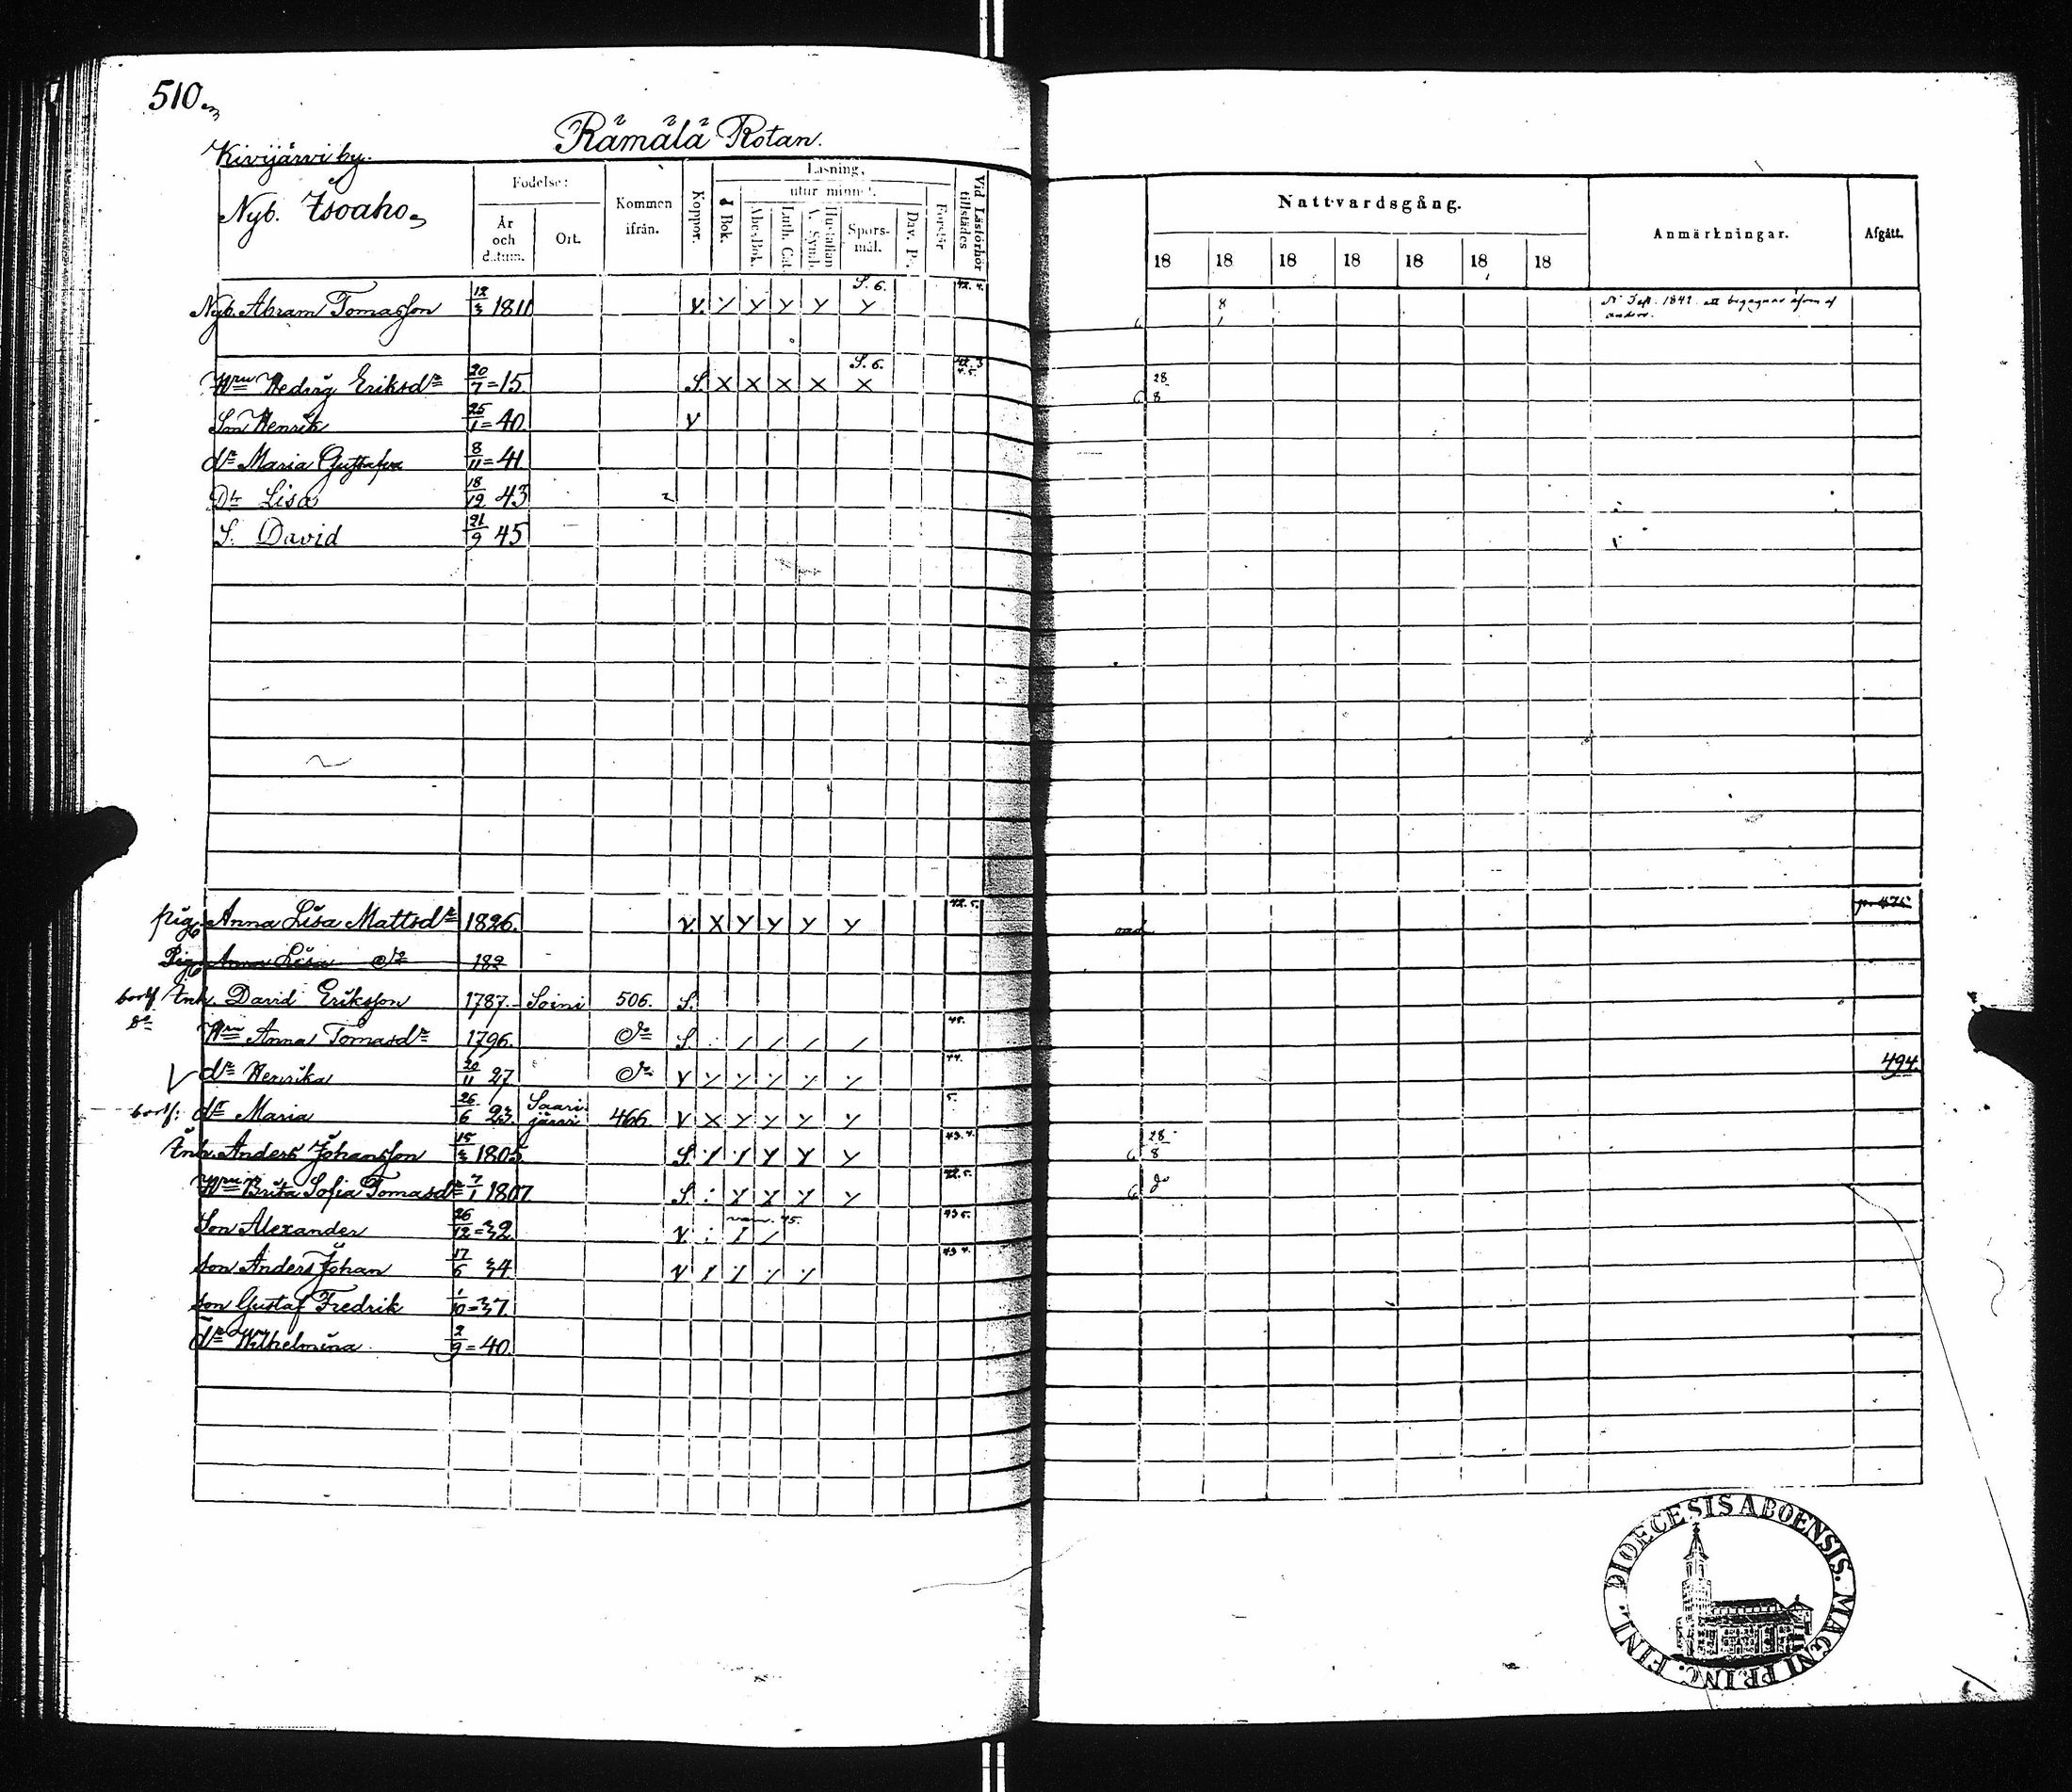 510.
Rämälä Rotan.
Kivijärvi by.
Nyb. Isoaho,
Födelse:
År och datum.
Ort.
Kommen ifrån.
Koppor.
Läsning,
utur minnet.
Bok.
Abc-Bok.
Luth. Cat.
Hustaflan A. Symb.
Spörs-mål.
Dav. Ps.
Förstår
Vid Läsförhör tillstädes
Nattvardsgång.
18 18 18 18 18 18 18
Anmärkningar.
Afgått.
Nyb. Abram Tomasson 12/3 1811 v. S. 6. 42. 4. 8
Sept. 1842 att begagnas
Hru Hedvig Eriksdr 20/7 = 15. S. X X X X X S. 6. 42. 3 4. 5. 28 8
Son Henrik 25/1 = 40. v
dr Maria Gustafva 8/11 = 41
Dr Lisa 18/12 43
S. David 21/9 45
pig. Anna Lisa Mattsdr 1826. v. X Y Y Y Y 42. 5.
Pig Anna Lisa do 182
bortf Inh. David Eriksson 1787. Soini 506. S.
do Hru Anna Tomasdr 1796. do S. 45.
V dr Henrika 20/11 27 do v 44. 494.
bortf: dr Maria 26/6 23. Saari järvi 466 v X Y Y Y Y 5.
Inh. Anders Johansson 15/3 1805 S. 43. 4. 28 8
Hru Brita Sofia Tomasdr 7/1 1807 S 42. 5. do
Son Alexander 26/12 = 32 v. 45. 43 5.
son Anders Johan 17/6 34 v 43 4.
son Gustaf Fredrik 1/10 = 37
dr Wilhelmina 2/9 = 40.
DIOECESIS ABOENSIS. MAGNI PRINC. FINL.